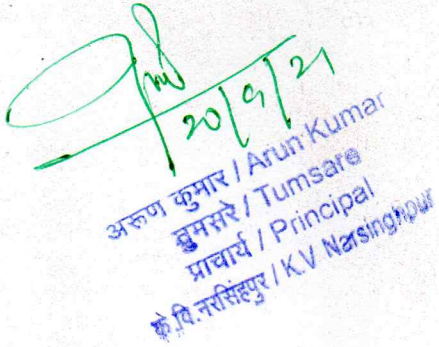 20/9/21
अरुण कुमार / Arun Kumar
तुमसरे / Tumsare
प्राचार्य / Principal
के.वि.नरसिंहपुर / K.V Narsinghpur